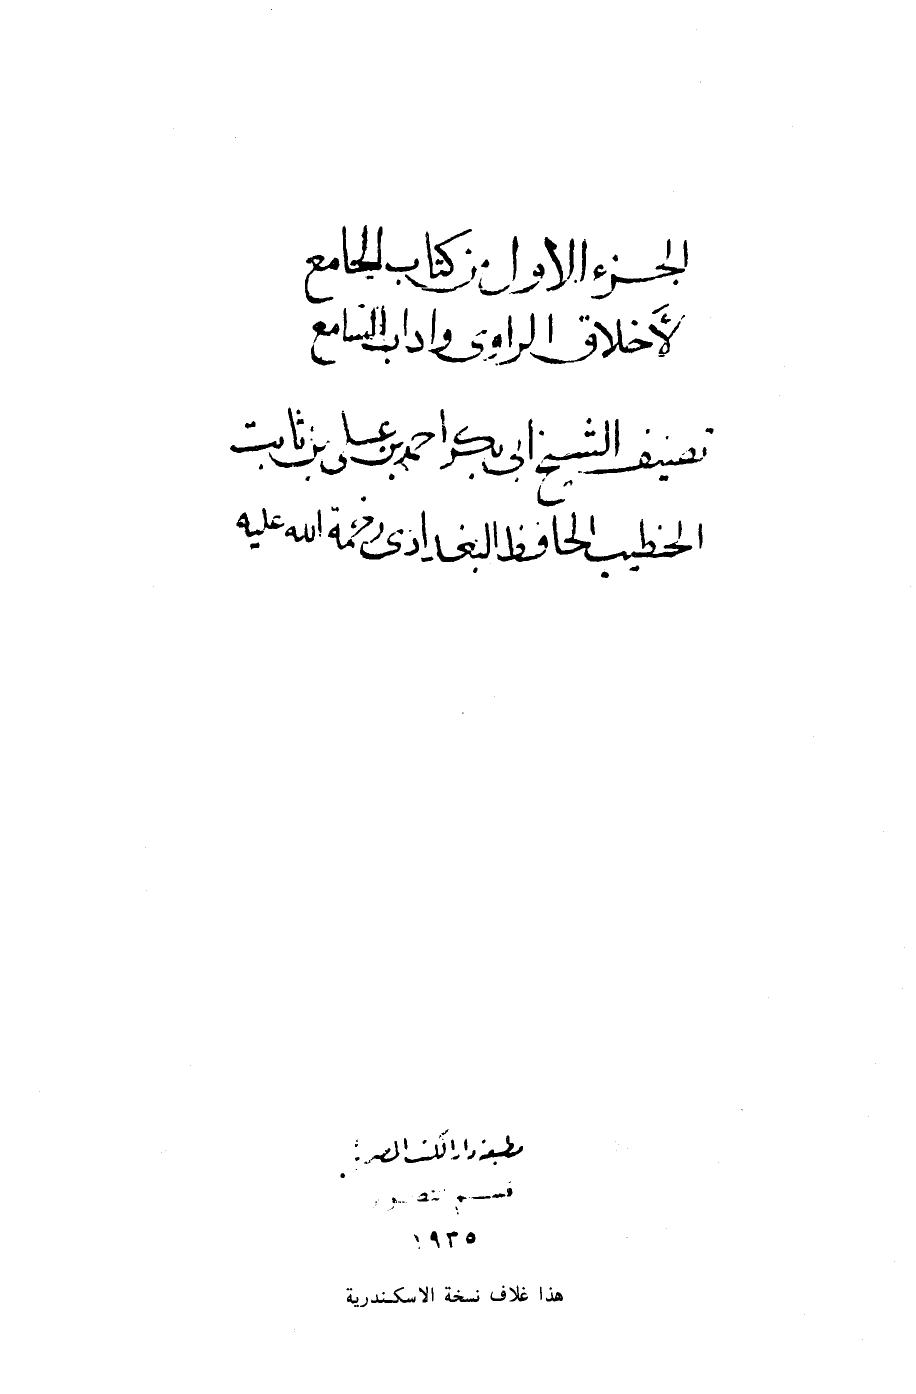 الجزء الاول من كتاب الجامع
لأخلاق الراوى واداب السامع
تصنيف الشيخ ابى بكر احمد بن على بن ثابت
الخطيب الحافظ البغدادى رحمة الله عليه
مطبعة دار الكتب المصرية
قسم التصوير
١٩٣٥
هذا غلاف نسخة الاسكندرية